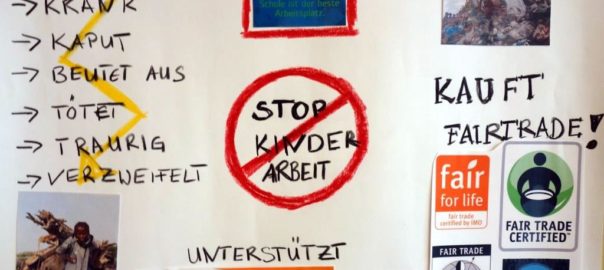 → KRANK
→ KAPUT
→ BEUTET AUS
→ TÖTET
→ TRAURIG
→ VERZWEIFELT
Schule ist der beste
Arbeitsplatz.
STOP
KINDER
ARBEIT
UNTERSTÜTZT
KAUFT
FAIRTRADE!
fair
for life
fair trade
certified by IMO
FAIR TRADE
CERTIFIED™
FAIR TRADE